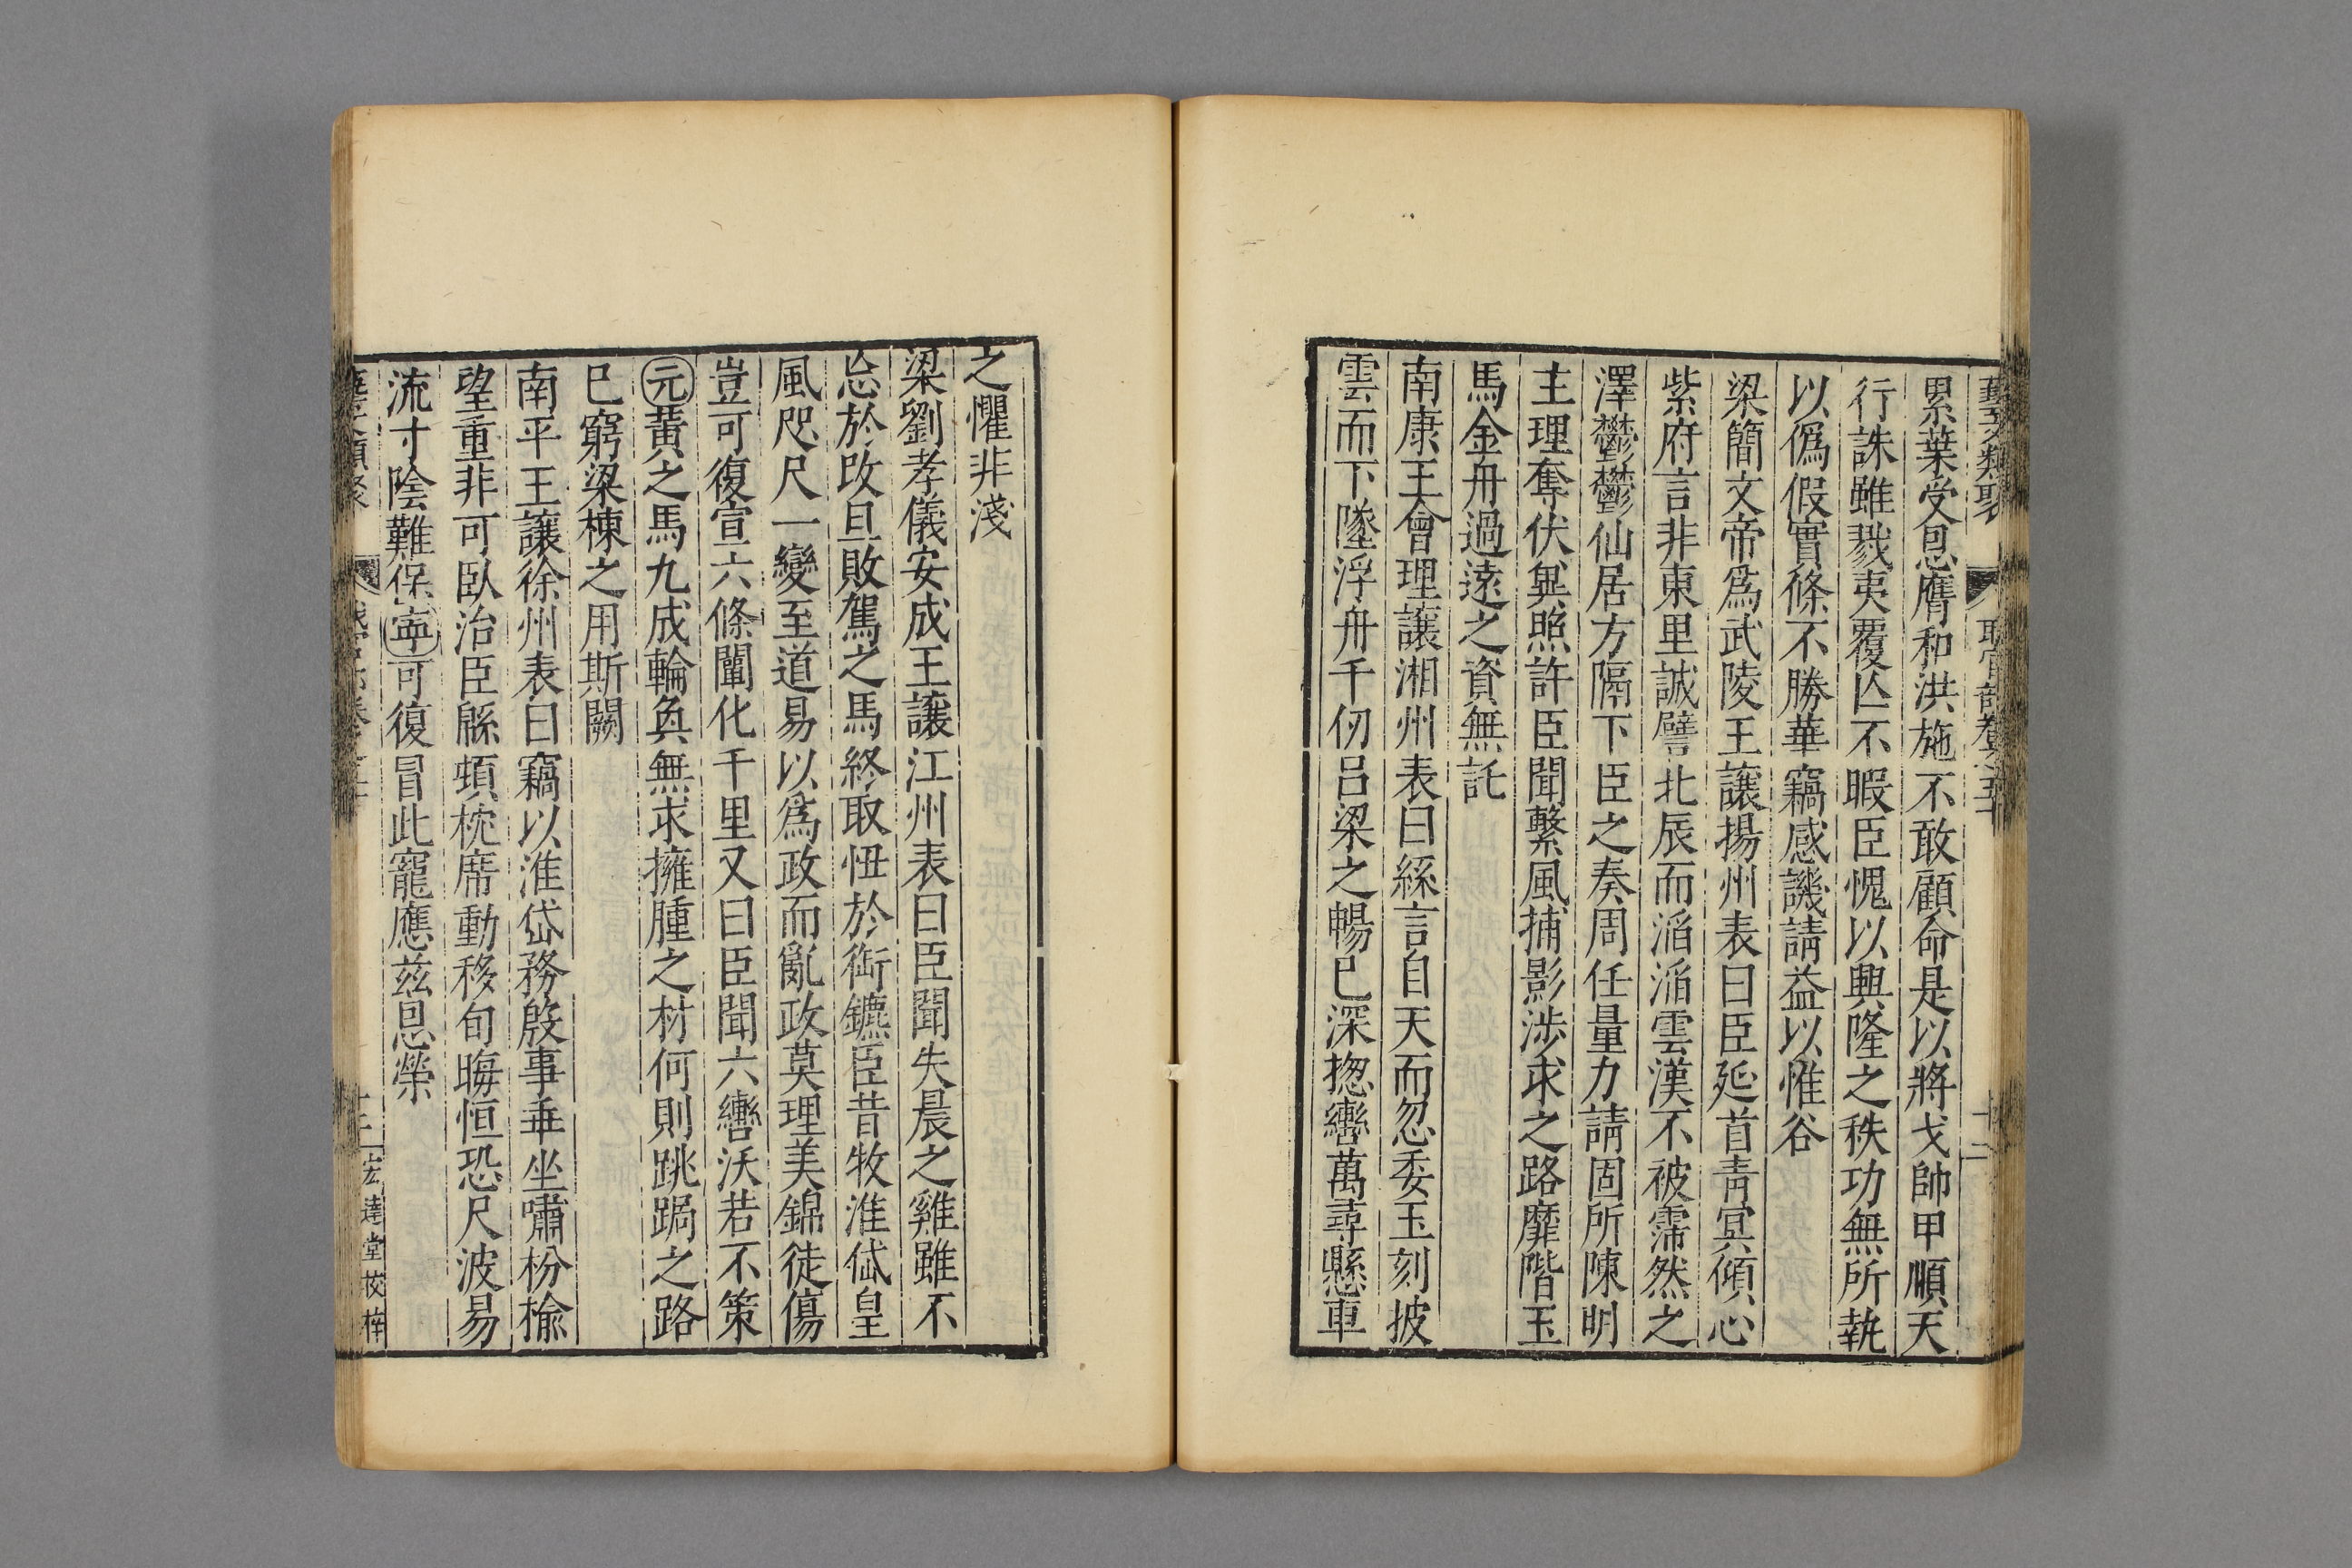 藝文類聚 職官部卷之五十 十二
累葉受恩膺和洪施不敢顧命是以將戈帥甲順天
行誅雖戮夷覆亾不暇臣愧以興隆之秩功無所執
以僞假實條不勝華竊感譏請益以惟谷
梁簡文帝爲武陵王讓揚州表曰臣延首青冥傾心
紫府言非東里誠譬北辰而滔滔雲漢不被霈然之
澤鬱鬱仙居方隔下臣之奏周任量力請固所陳明
主理奪伏異照許臣聞繫風捕影涉求之路靡階玉
馬金舟過遠之資無託
南康王會理讓湘州表曰絲言自天而忽委玉刻披
雲而下墬浮舟千仞呂梁之暢巳深揔轡萬尋懸車
之懼非淺
梁劉孝儀安成王讓江州表曰臣聞失晨之雞雖不
忘於改旦敗駕之馬終取忸於銜鑣臣昔牧淮岱皇
風咫尺一變至道易以爲政而亂政莫理美錦徒傷
豈可復宣六條闡化千里又曰臣聞六轡沃若不策
元黃之馬九成輪奐無求擁腫之材何則跳跼之路
巳窮梁棟之用斯闕
南平王讓徐州表曰竊以淮岱務殷事乖坐嘯枌榆
望重非可臥治臣緜頓枕席動移旬晦恒恐尺波易
流寸陰難保寧可復冒此寵應茲恩榮
宏達堂校梓